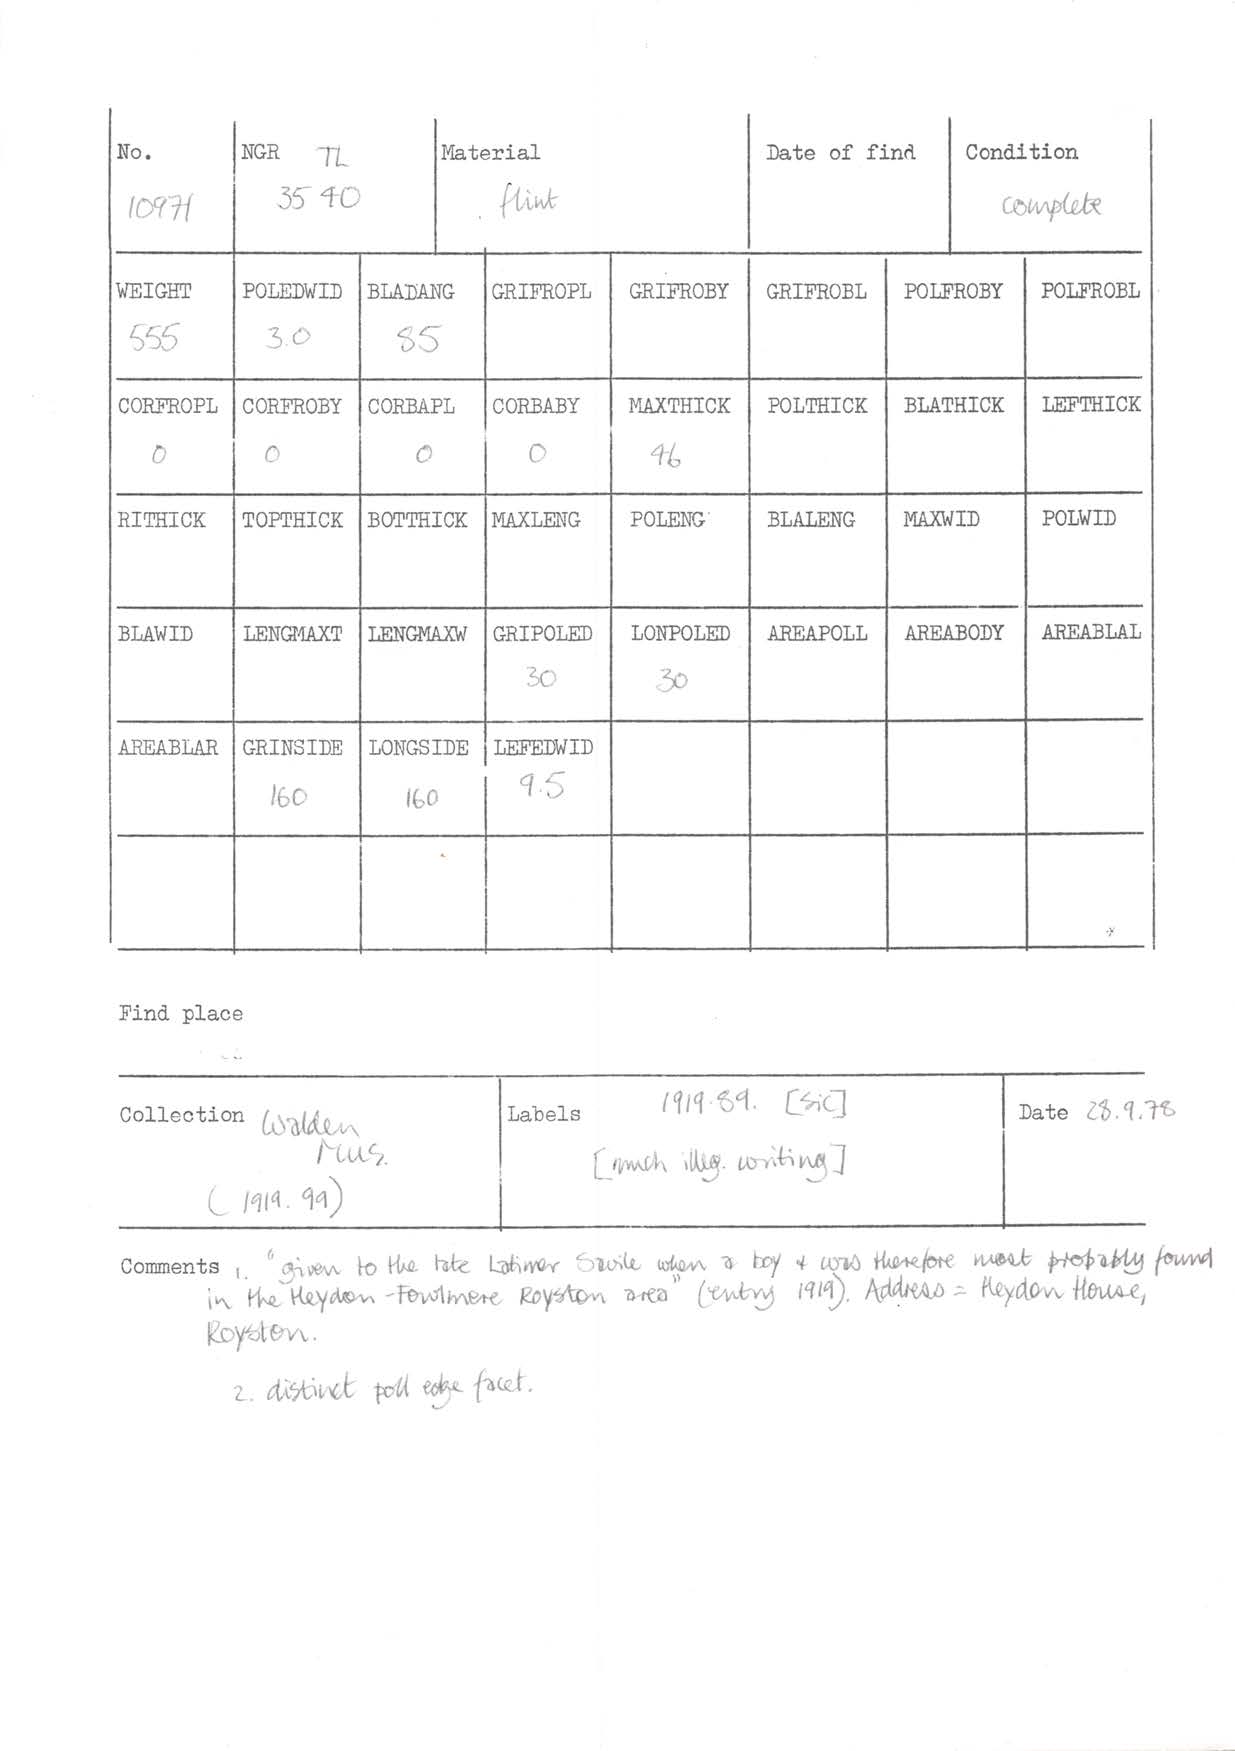 No. NGR TL Material Date of find Condition
10971 35 40 flint complete
WEIGHT POLEDWID BLADANG GRIFROPL GRIFROBY GRIFROBL POLFROBY POLFROBL
555 3.0 85
CORFROPL CORFROBY CORBAPL CORBABY MAXTHICK POLTHICK BLATHICK LEFTHICK
0 0 0 0 46
RITHICK TOPTHICK BOTTHICK MAXLENG POLENG BLALENG MAXWID POLWID
BLAWID LENGMAXT LENGMAXW GRIPOLED LONPOLED AREAPOLL AREABODY AREABLAL
30 30
AREABLAR GRINSIDE LONGSIDE LEFEDWID
160 160 9.5
Find place
Collection Walden Mus. (1919.99)
Labels 1919.89. [sic]
[much illeg. writing]
Date 28.9.78
Comments 1. "given to the late Latimer Savile when a boy & was therefore most probably found
in the Heydon-Fowlmere Royston area" (entry 1919). Address = Heydon House,
Royston.
2. distinct poll edge facet.